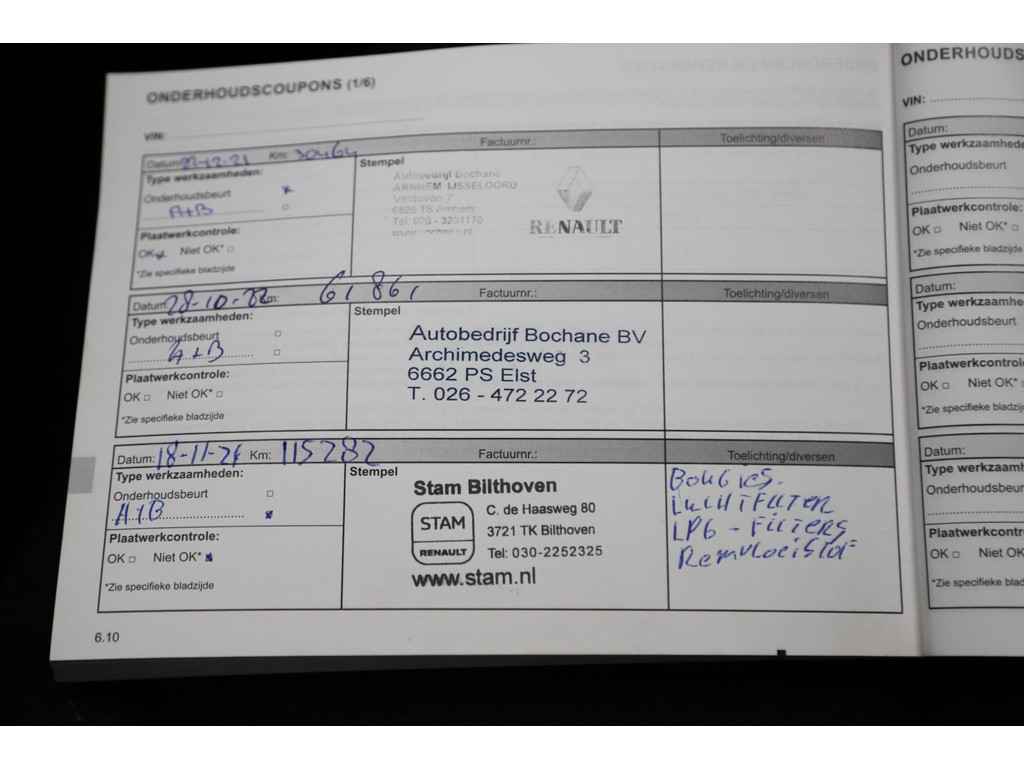 ONDERHOUDSCOUPONS (1/6)
VIN:
Datum: 23-12-21 Km: 30464
Factuurnr.:
Toelichting/diversen
Type werkzaamheden:
Onderhoudsbeurt
A+B
Plaatwerkcontrole:
OK Niet OK*
*Zie specifieke bladzijde
Stempel
Autobedrijf Bochane
ARNHEM IJSSELOORD
6826 TS Arnhem
RENAULT
Datum: 28-10-22 Km: 61861
Factuurnr.:
Toelichting/diversen
Type werkzaamheden:
Onderhoudsbeurt
A+B
Plaatwerkcontrole:
OK Niet OK*
*Zie specifieke bladzijde
Stempel
Autobedrijf Bochane BV
Archimedesweg 3
6662 PS Elst
T. 026 - 472 22 72
Datum: 18-11-24 Km: 115282
Factuurnr.:
Toelichting/diversen
Type werkzaamheden:
Onderhoudsbeurt
A+B
Plaatwerkcontrole:
OK Niet OK*
*Zie specifieke bladzijde
Stempel
Stam Bilthoven
STAM
RENAULT
C. de Haasweg 80
3721 TK Bilthoven
Tel: 030-2252325
www.stam.nl
BOUGIES.
LUCHTFILTER
LPG - FILTERS
Remvloeistof
6.10
ONDERHOUDS
VIN:
Datum:
Type werkzaamhede
Onderhoudsbeurt
Plaatwerkcontrole:
OK Niet OK*
*Zie specifieke bladzij
Datum:
Type werkzaamhe
Onderhoudsbeurt
Plaatwerkcontrol
OK Niet OK*
*Zie specifieke bladz
Datum:
Type werkzaamh
Onderhoudsbeur
Plaatwerkcontro
OK Niet OK
*Zie specifieke bla